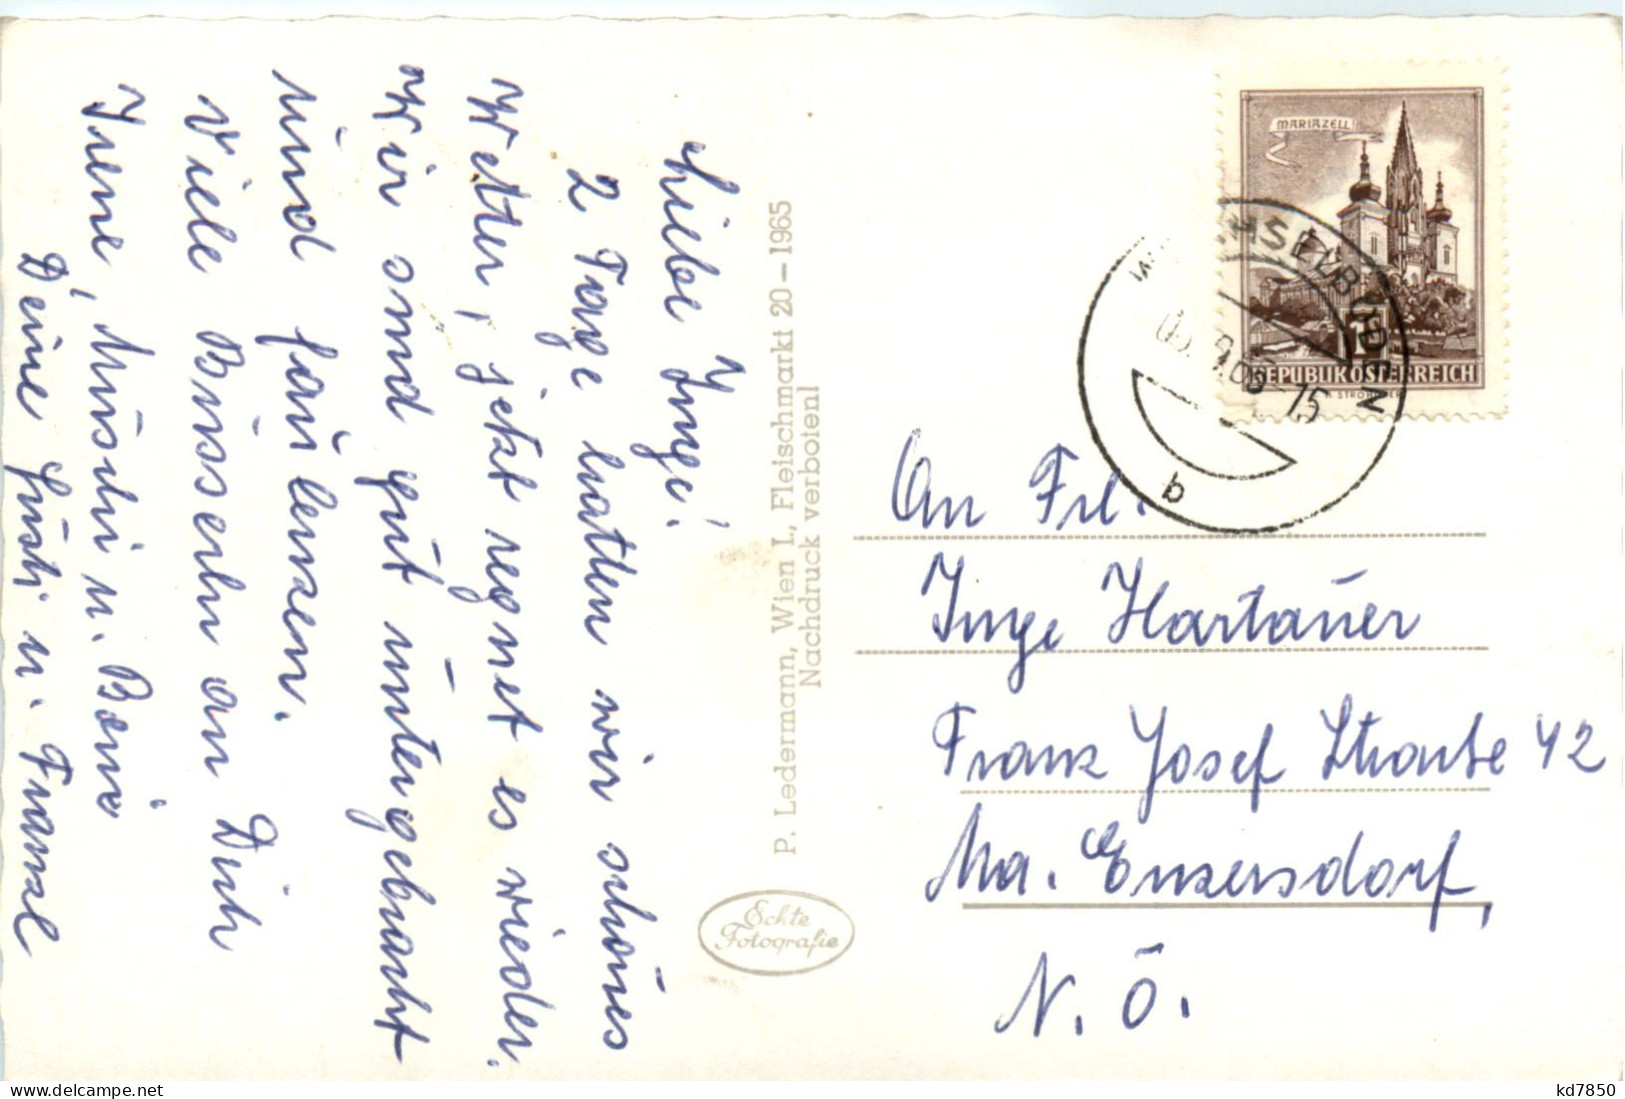 Liebe Inge!
2 Tage hatten wir schönes
Wetter, jetzt regnet es wieder.
Wir sind gut untergebracht
und faulenzen.
Viele Busserln an Dich
Deine Gusti u. Franzl
P. Ledermann, Wien I., Fleischmarkt 20 – 1965
Nachdruck verboten!
Echte
Fotografie
MARIAZELL
REPUBLIK ÖSTERREICH
b
An Frl.
Inge Hartauer
Franz Josef Straße 42
Ma. Enzersdorf,
N.Ö.
Delcampe.net
kd7850